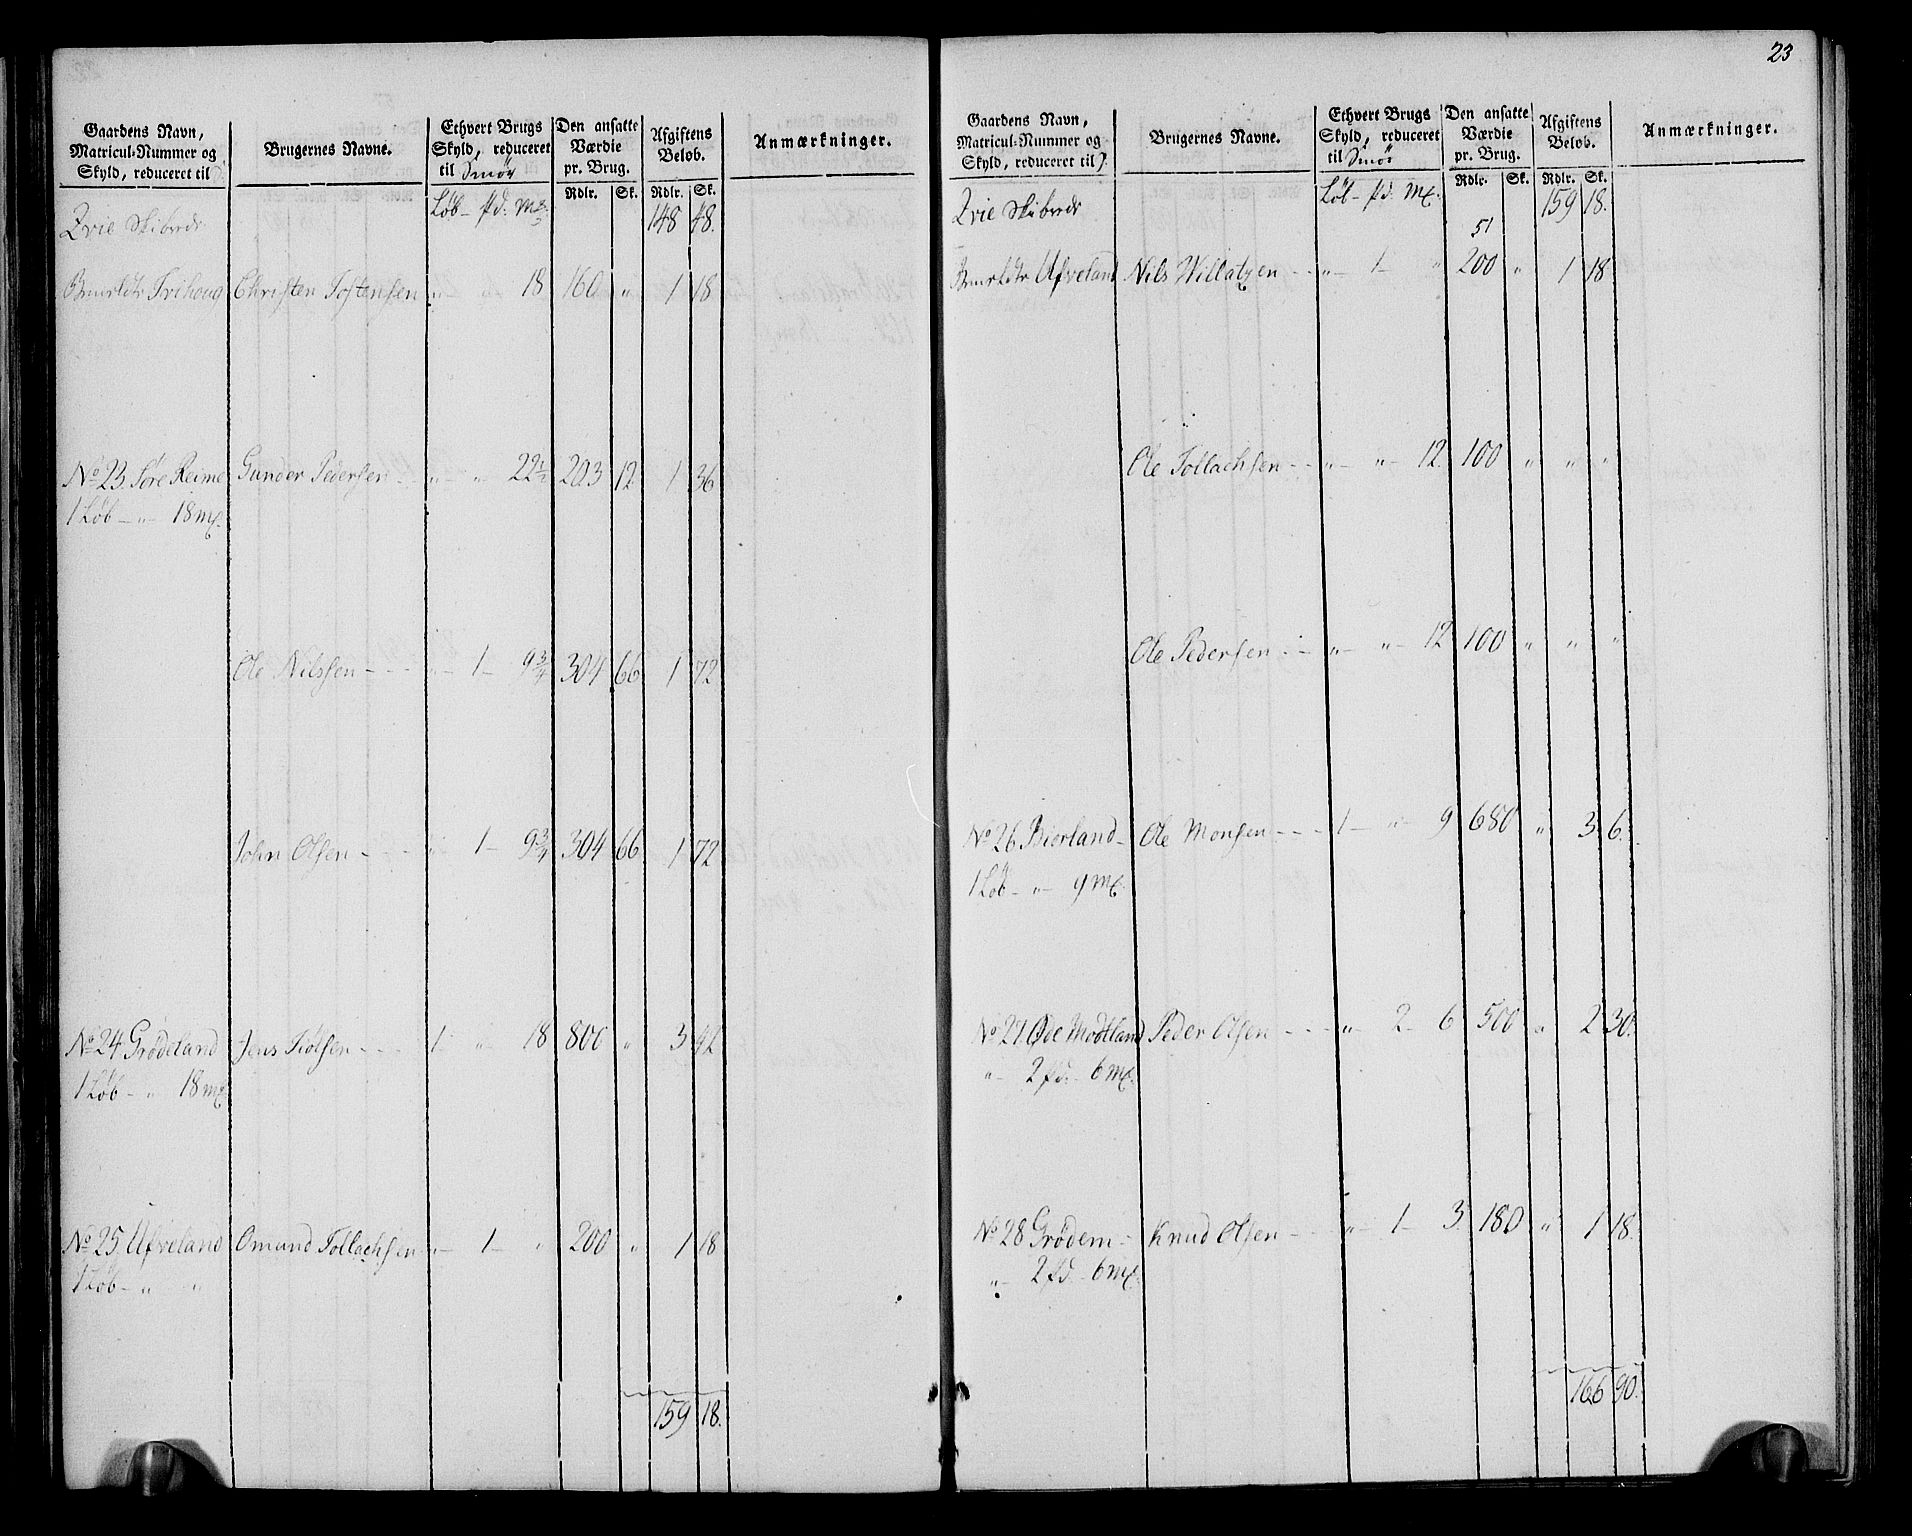 Gaardens Navn,
Matricul-Nummer og
Skyld, reduceret til
Brugernes Navne.
Ethvert Brugs
Skyld, reduceret
til Smör
Den ansatte
Værdie
pr. Brug.
Rdlr. Sk.
Afgiftens
Beløb.
Rdlr. Sk.
Anmærkninger.
Løb - pd: mk:
148 48.
Qvie Skibrede
Trihoug Christen Tostensen " " 18 160 " 1 18
No 23. Søre Reime Gunder Pedersen - " " 22½ 203 12 1 36
1 Løb - " 18 mk.
Ole Nilssen - - - " 1 - 9¾ 304 66 1 72
John Olsen - - - " 1 - 9¾ 304 66 1 72
No 24 Grødeland Jens Tiølsen - - - 1 - " 18 800 " 3 42
1 Løb - " 18 mk
No 25. Ufveland Omund Tollachsen " 1 - " 200 " 1 18
1 Løb - " "
159 18.
23
Gaardens Navn,
Matricul-Nummer og
Skyld, reduceret til
Brugernes Navne.
Ethvert Brugs
Skyld, reduceret
til Smör
Den ansatte
Værdie
pr. Brug.
Rdlr. Sk.
Afgiftens
Beløb.
Rdlr. Sk.
Anmærkninger.
Løb - pd: mk.
159 18.
Qvie Skibrede
51
Ufveland Nils Willatzen - - " 1 - " 200 " 1 18
Ole Tollachsen - - " " 12 100 " " "
Ole Pedersen - - " " 12 100 " " "
No 26 Bierland - Ole Monsen - - - 1 - " 9 680 " 3 6.
1 Løb - " - 9 mk.
No 27. Øde Modtland Peder Olsen - - - " 2 - 6 500 " 2 30.
" - 2 pd. - 6 mk.
No 28 Grødem - Knud Olsen - - " 1 - 3 180 " 1 18.
" - 2 pd. - 6 mk.
166 90.